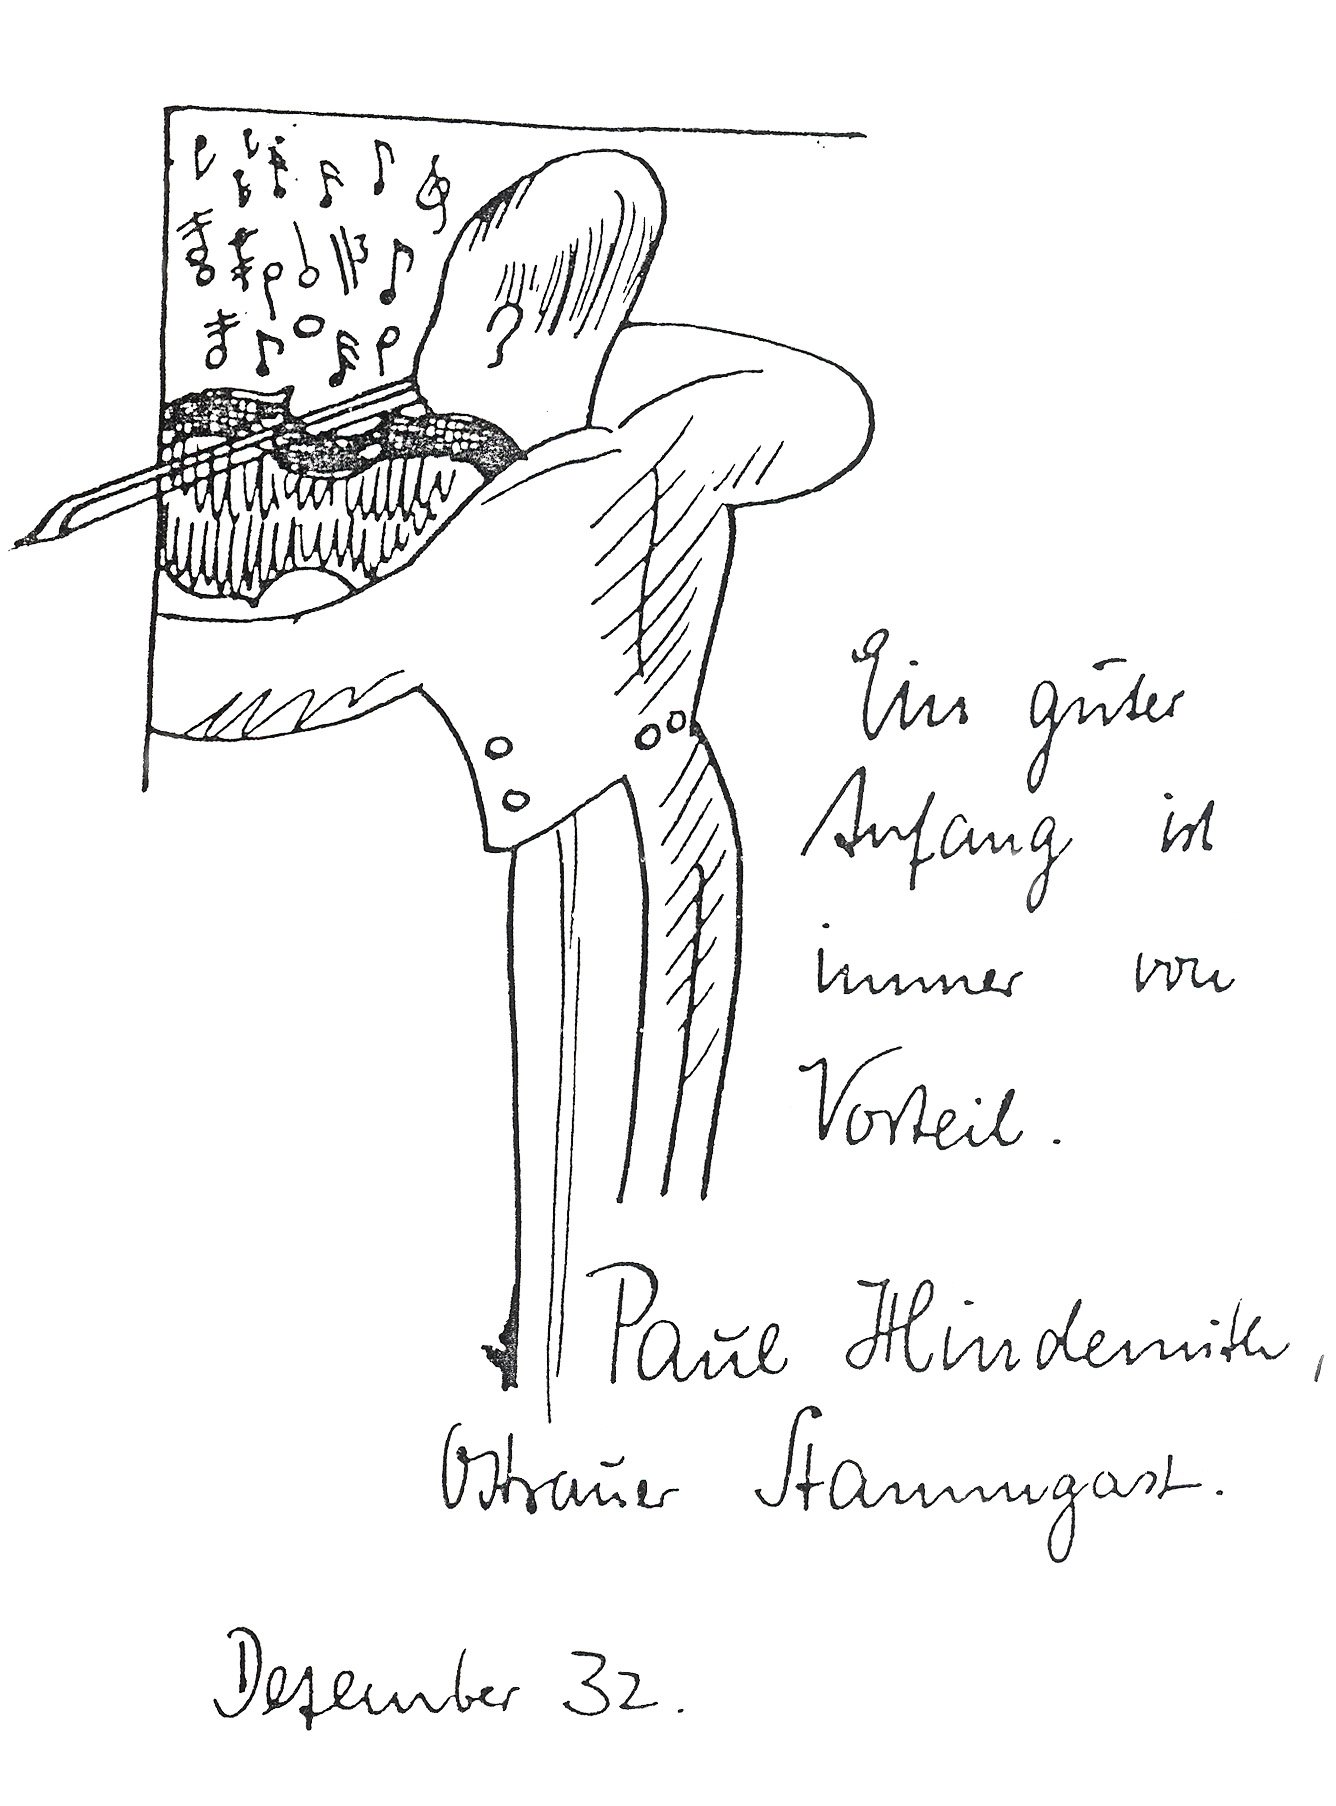 Ein guter
Anfang ist
immer von
Vorteil.
Paul Hindemith,
Ostrauer Stammgast.
Dezember 32.